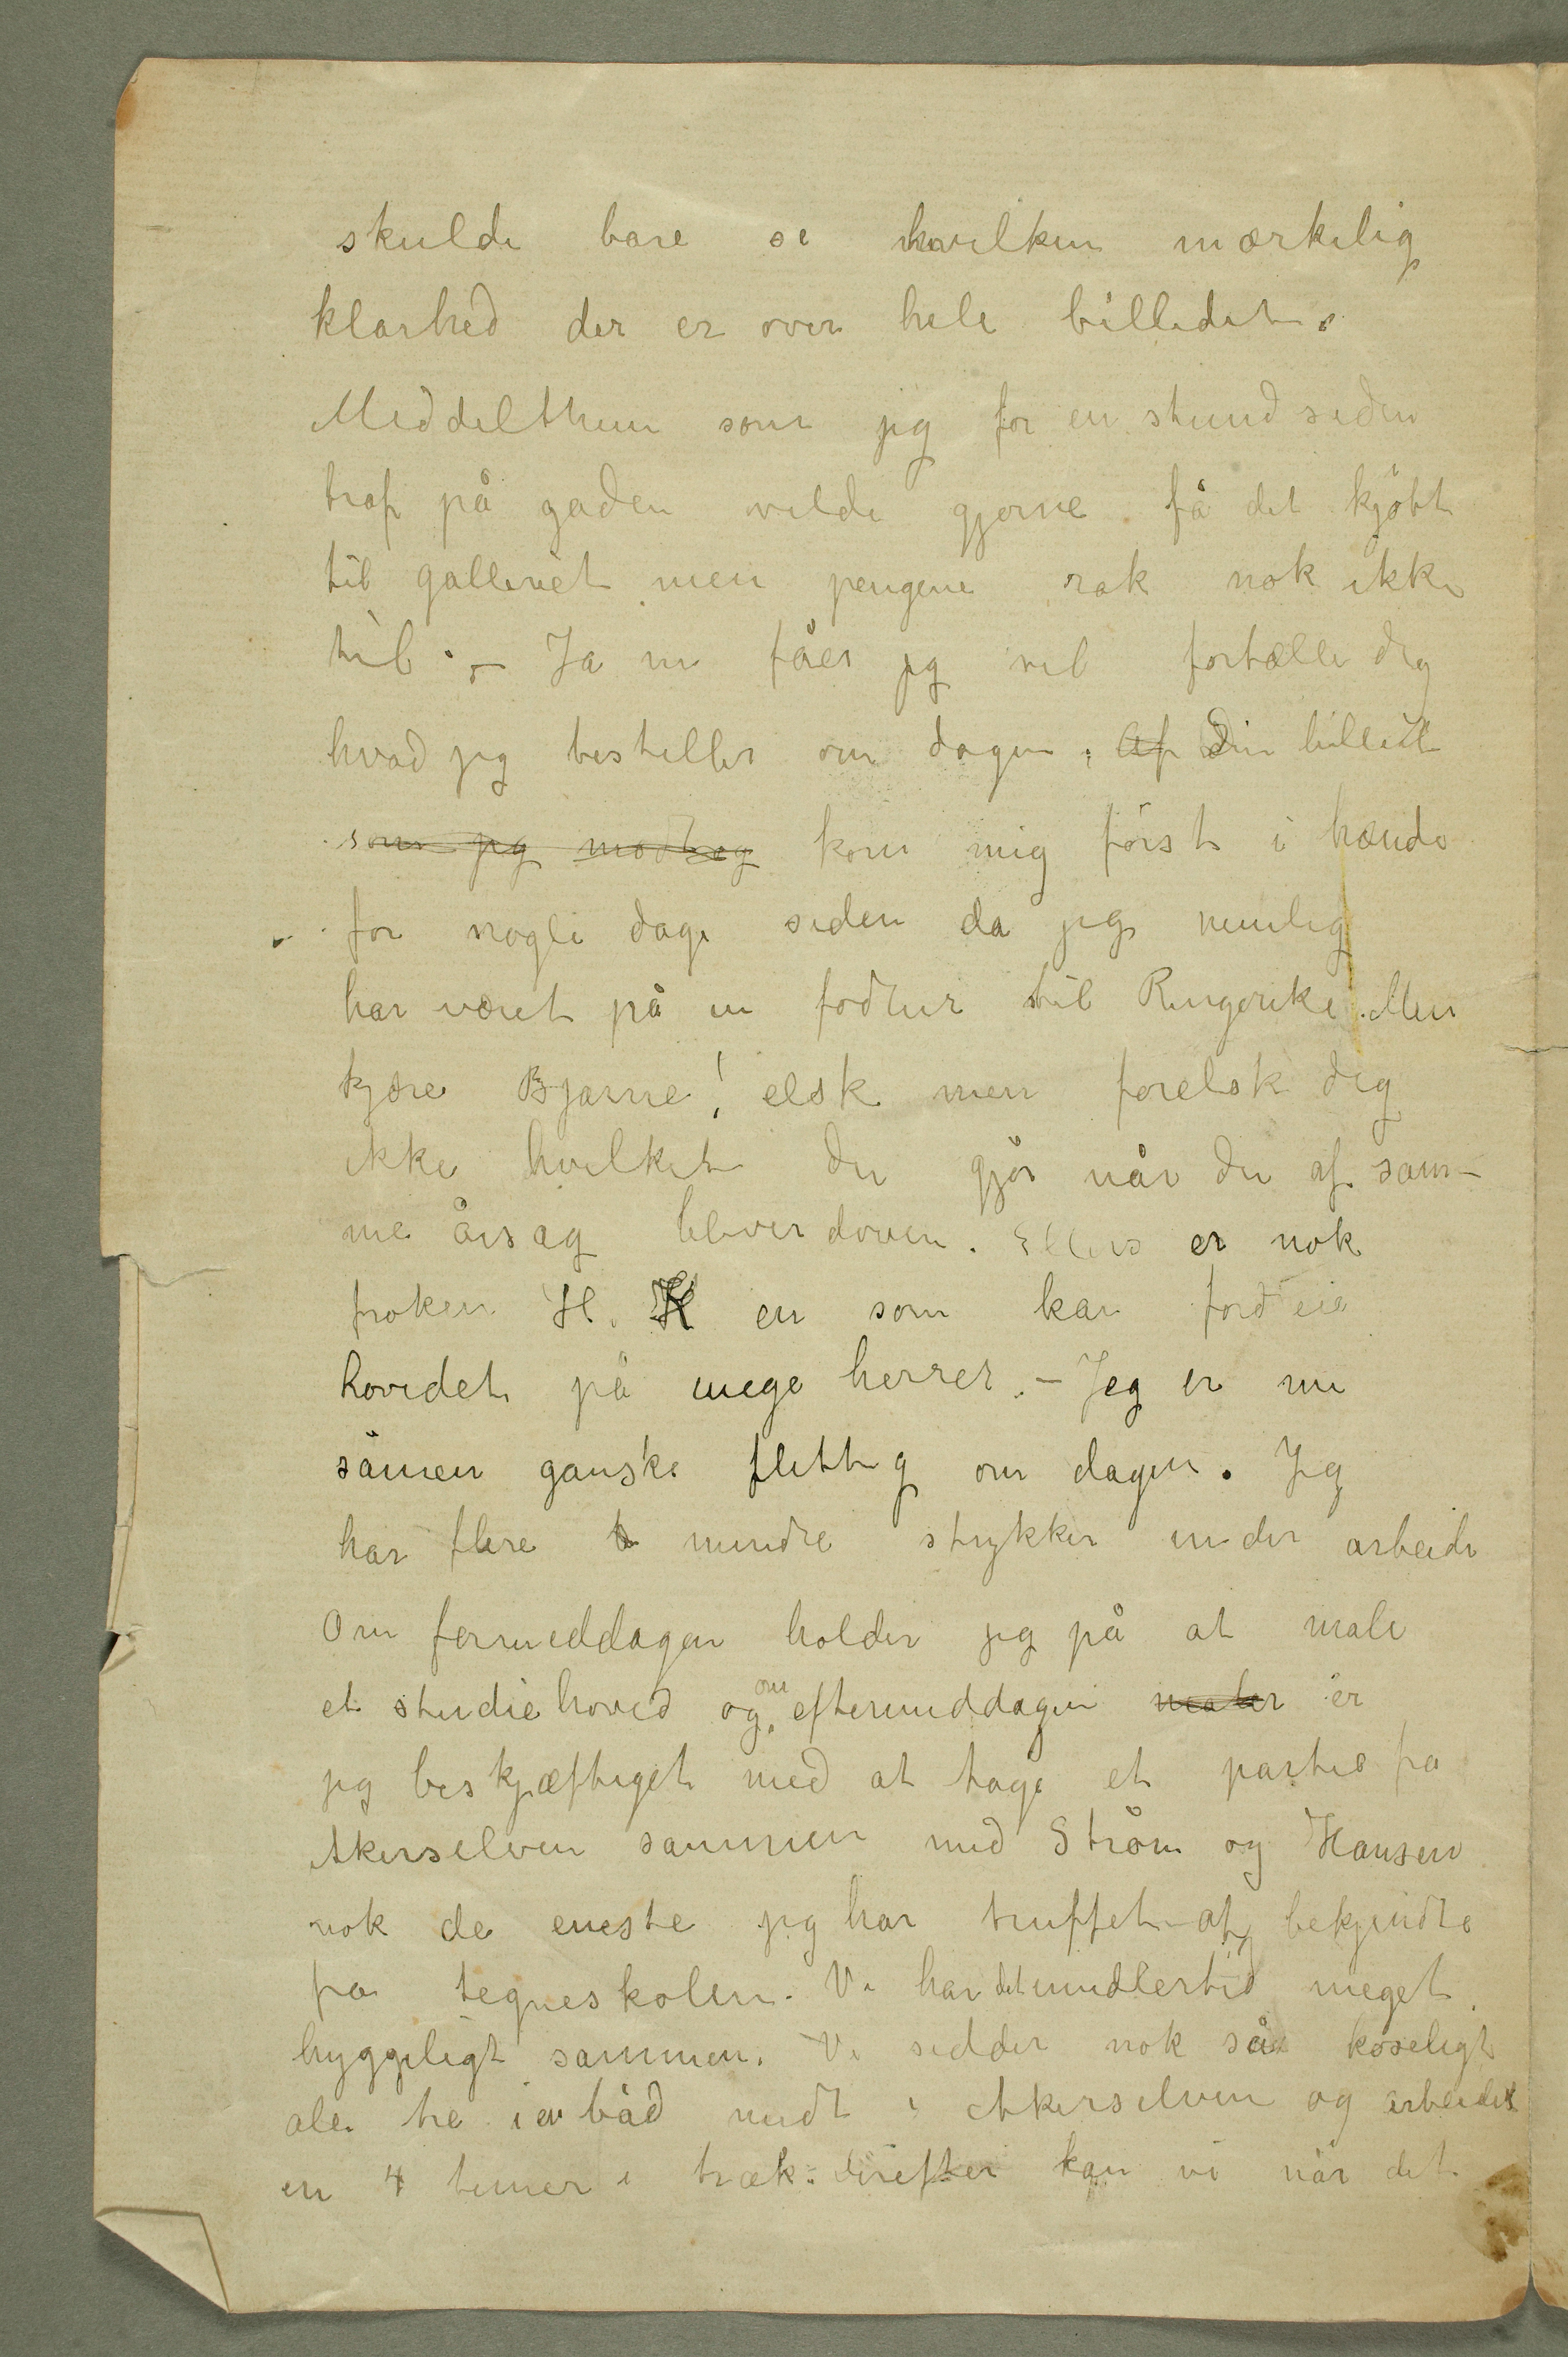 skulde bare se hvilken mærkelig
klarhed der er over hele billedet.
Middelthun som jeg for en stund siden
traf på gaden vilde gjerne få det kjöbt
til galleriet men pengene rak nok ikke
til. – Ja nu fåer jeg vel fortælle dig
hvad jeg bestiller om dagen. Af Din billett
som jeg modtog kom mig först i hænde
for nogle dage siden da jeg nemlig
har været på en fodtur til Ringerike. Men
kjære Bjarne! elsk men forelsk dig
ikke hvilket du gjör når du af sam-
me årsag bliver doven. Ellers er nok
froken H. H en som kan fordreie
hovedet på mege herrer. – Jeg er nu
såmen ganske flittig om dagen. Jeg
har flere mindre stykker under arbeide
Om formeddagen holder jeg på at male
et studiehoved og om eftermiddagen maler er
jeg beskjæftiget med at tage et parti fra
Akerselven sammen med Ström og Hansen
nok de eneste jeg har truffet af bekjendte
fra tegneskolen. Vi har det imidlertid meget
hyggeligt sammen. Vi sidder nok så koseligt
alle tre i en båd midt i Akerselven og arbeider
en 4 timer i træk. derefter kan vi når det